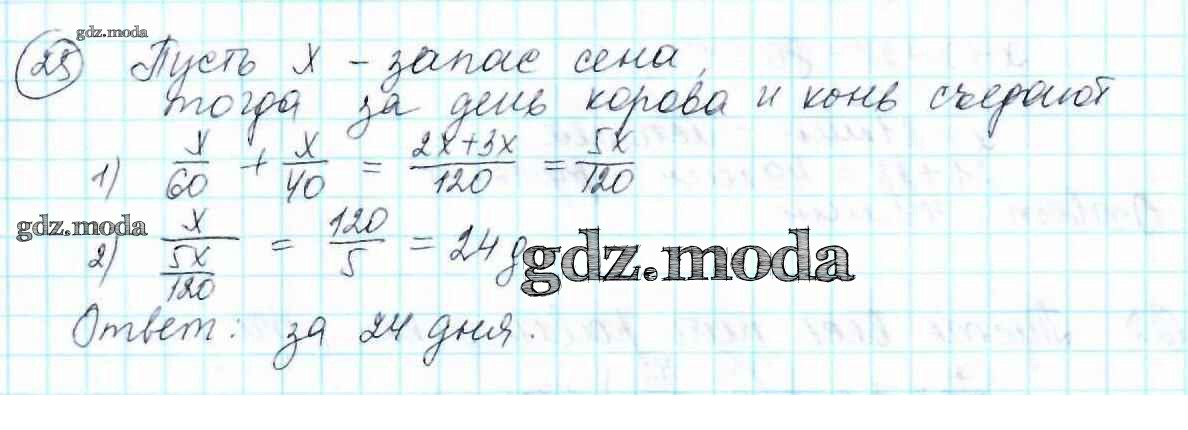 gdz.moda
25 Пусть x - запас сена,
тогда за день корова и конь съедают
1) x/60 + x/40 = 2x+3x/120 = 5x/120
gdz.moda
2) x/5x/120 = 120/5 = 24 д
gdz.moda
Ответ: за 24 дня.